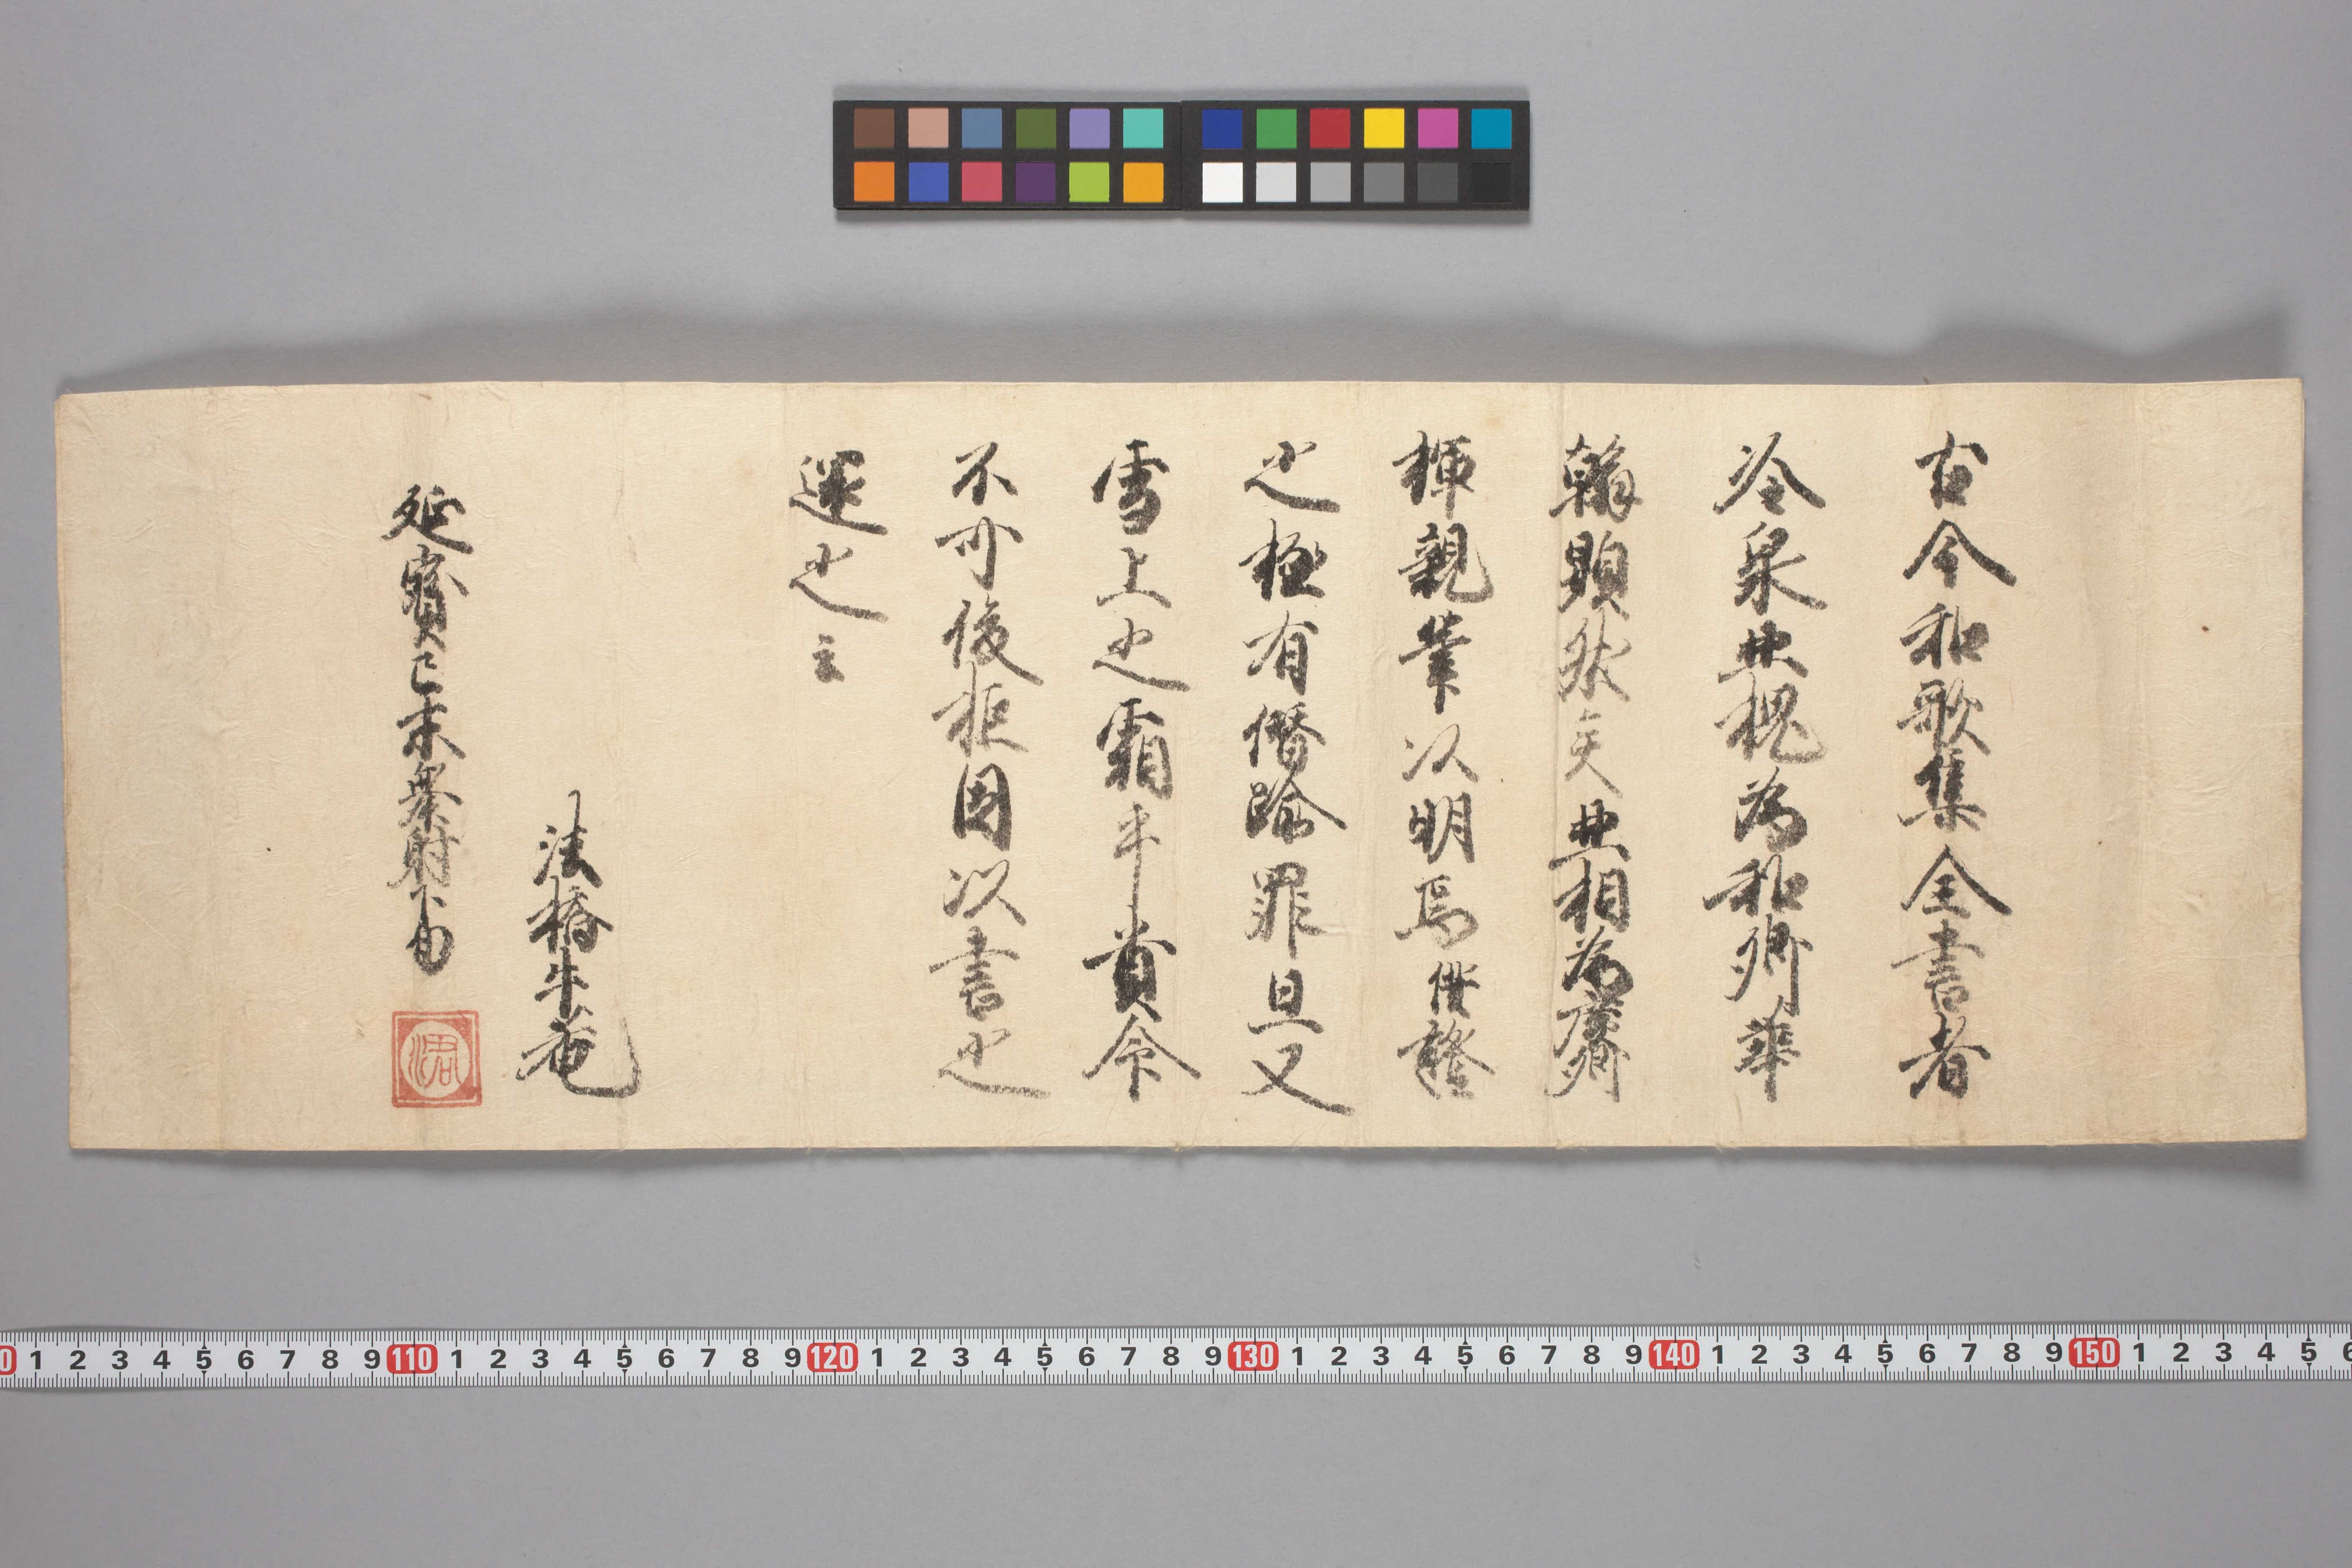 古今和歌集全書者
冷泉亞槐為和卿華
翰顕然矣亞相為廣卿
揮親筆以明焉證
之極有僭踰罪且又
雪上之霜乎貴命
不可復拒因以書之
還之云
法橋牛菴
延寶己未無射下旬
0 1 2 3 4 5 6 7 8 9 110 1 2 3 4 5 6 7 8 9 120 1 2 3 4 5 6 7 8 9 130 1 2 3 4 5 6 7 8 9 140 1 2 3 4 5 6 7 8 9 150 1 2 3 4 5 6